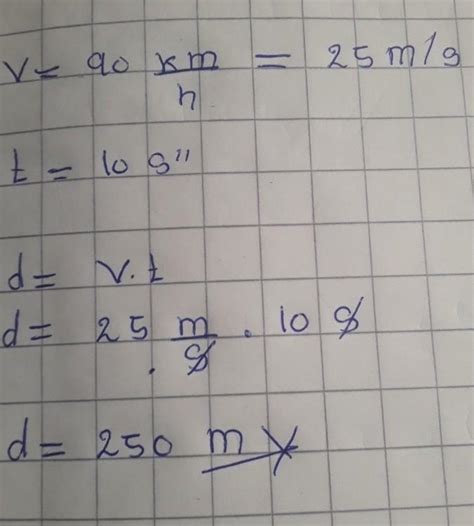 v = 90 km/h = 25 m/s
t = 10 s"
d = v.t
d = 25 m/s . 10 s
d = 250 m